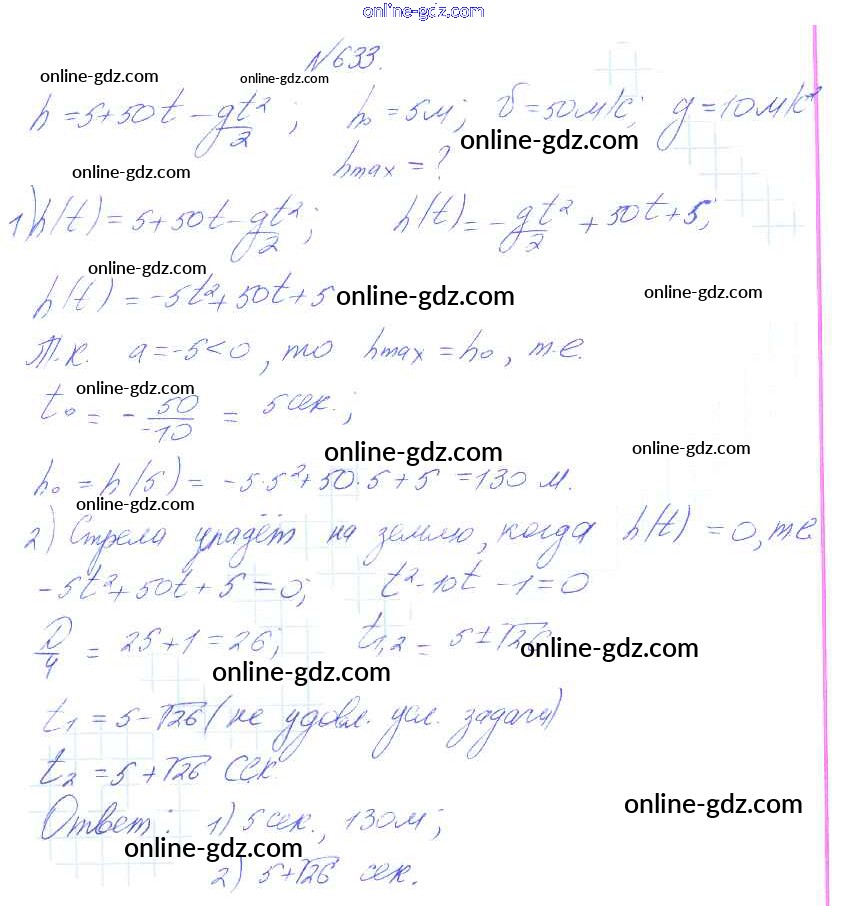 online-gdz.com
№633.
online-gdz.com online-gdz.com
h = 5+50t - gt²/2 ; h₀ = 5м; v = 50м/с; g = 10м/с²
online-gdz.com
hmax = ?
online-gdz.com
1) h(t) = 5+50t - gt²/2 ; h(t) = - gt²/2 + 50t + 5;
online-gdz.com
h(t) = -5t² + 50t + 5 online-gdz.com online-gdz.com
Т.к. a = -5 < 0, то hmax = h₀, т.е.
online-gdz.com
t₀ = - 50/-10 = 5 сек.;
online-gdz.com online-gdz.com
h₀ = h(5) = -5·5² + 50·5 + 5 = 130 м.
online-gdz.com
2) Стрела упадёт на землю, когда h(t) = 0, т.е
-5t² + 50t + 5 = 0; t² - 10t - 1 = 0
D/4 = 25 + 1 = 26; t₁,₂ = 5 ± √26
online-gdz.com
online-gdz.com
t₁ = 5 - √26 (не удовл. усл. задачи)
t₂ = 5 + √26 сек
online-gdz.com
Ответ: 1) 5 сек., 130 м;
online-gdz.com
2) 5 + √26 сек.